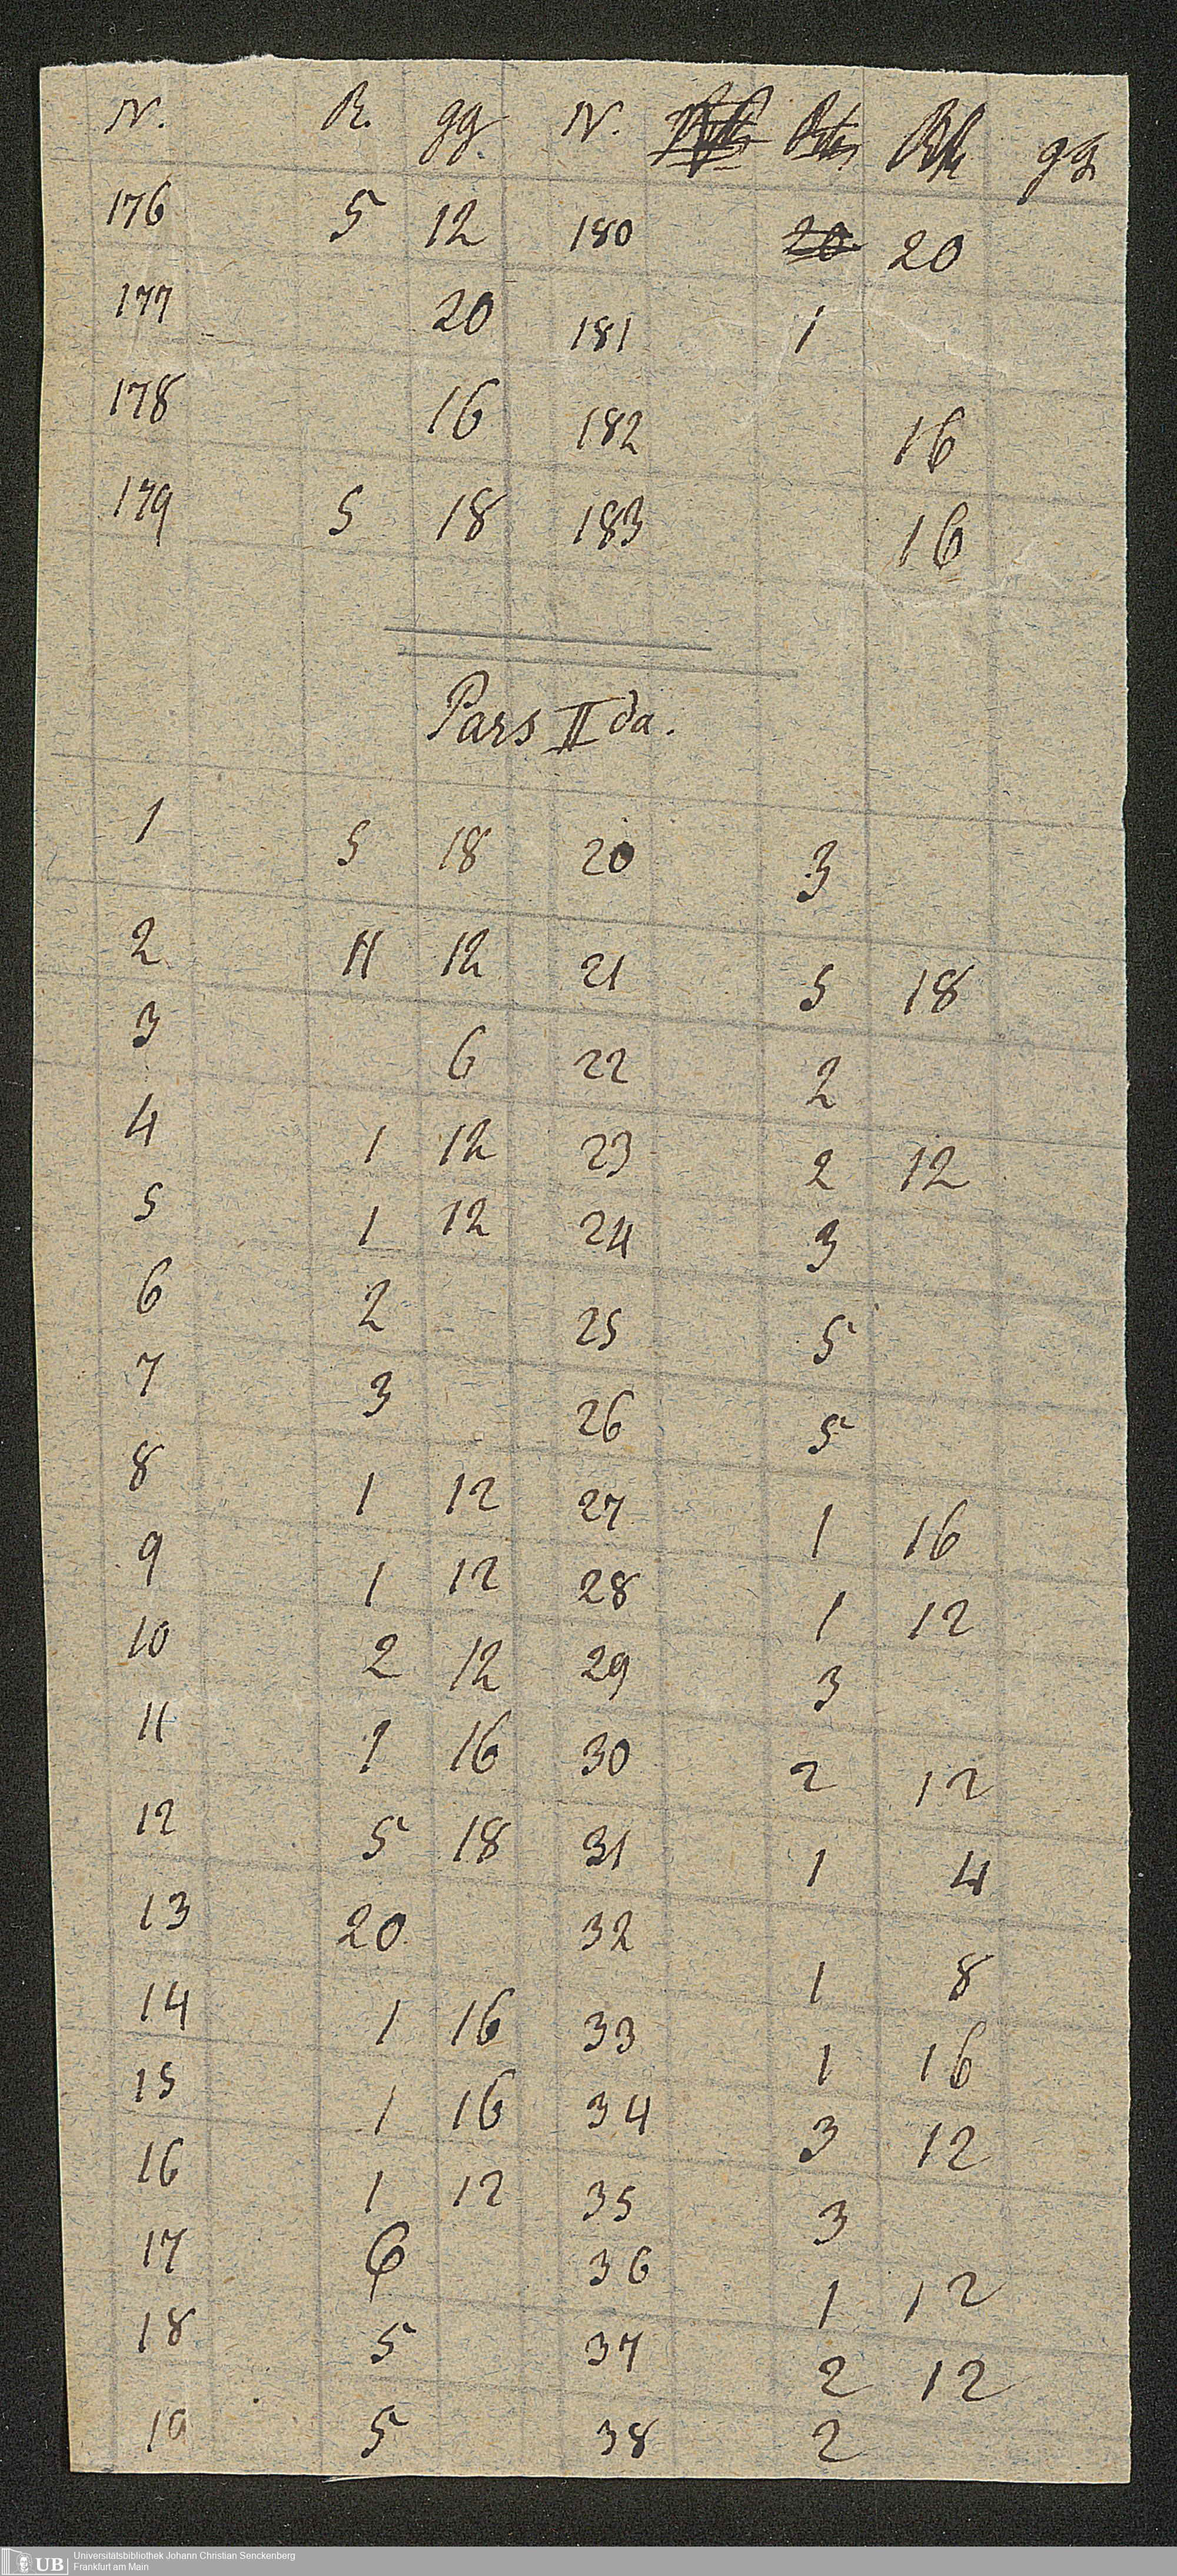 N. R. gg N. gg
176 5 12 180 20 20
177 20 181 1
178 16 182 16
179 5 18 183 16
Pars II da.
1 5 18 20 3
2 11 12 21 5 18
3 6 22 2
4 1 12 23 2 12
5 1 12 24 3
6 2 25 5
7 3 26 5
8 1 12 27 1 16
9 1 12 28 1 12
10 2 12 29 3
11 1 16 30 2 12
12 5 18 31 1 4
13 20 32 1 8
14 1 16 33 1 16
15 1 16 34 3 12
16 1 12 35 3
17 6 36 1 12
18 5 37 2 12
19 5 38 2
UB Universitätsbibliothek Johann Christian Senckenberg
Frankfurt am Main